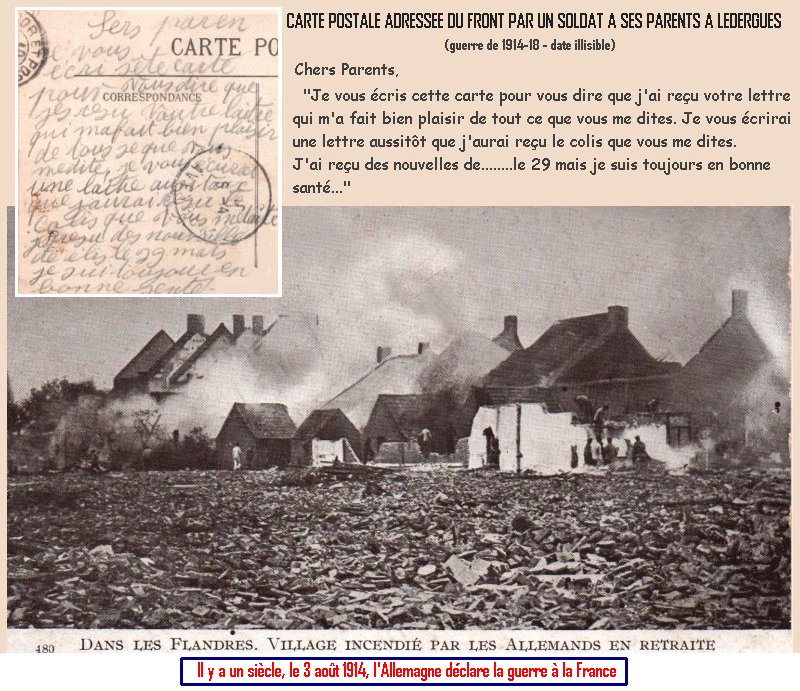 CARTE POSTALE ADRESSEE DU FRONT PAR UN SOLDAT A SES PARENTS A LEDERGUES
(guerre de 1914-18 - date illisible)
Chers Parents,
"Je vous écris cette carte pour vous dire que j'ai reçu votre lettre
qui m'a fait bien plaisir de tout ce que vous me dites. Je vous écrirai
une lettre aussitôt que j'aurai reçu le colis que vous me dites.
J'ai reçu des nouvelles de........le 29 mais je suis toujours en bonne
santé..."
CARTE PO
CORRESPONDANCE
Sers paren
je vous
écri sete carte
pour vous dire que
qui mafait bien plaisir
de tous se que vous
je vous
une
que jaurai
que vous
des nouvelles
de le 29 mais
je sui toujour en
bonne
480 DANS LES FLANDRES. VILLAGE INCENDIÉ PAR LES ALLEMANDS EN RETRAITE
Il y a un siècle, le 3 août 1914, l'Allemagne déclare la guerre à la France